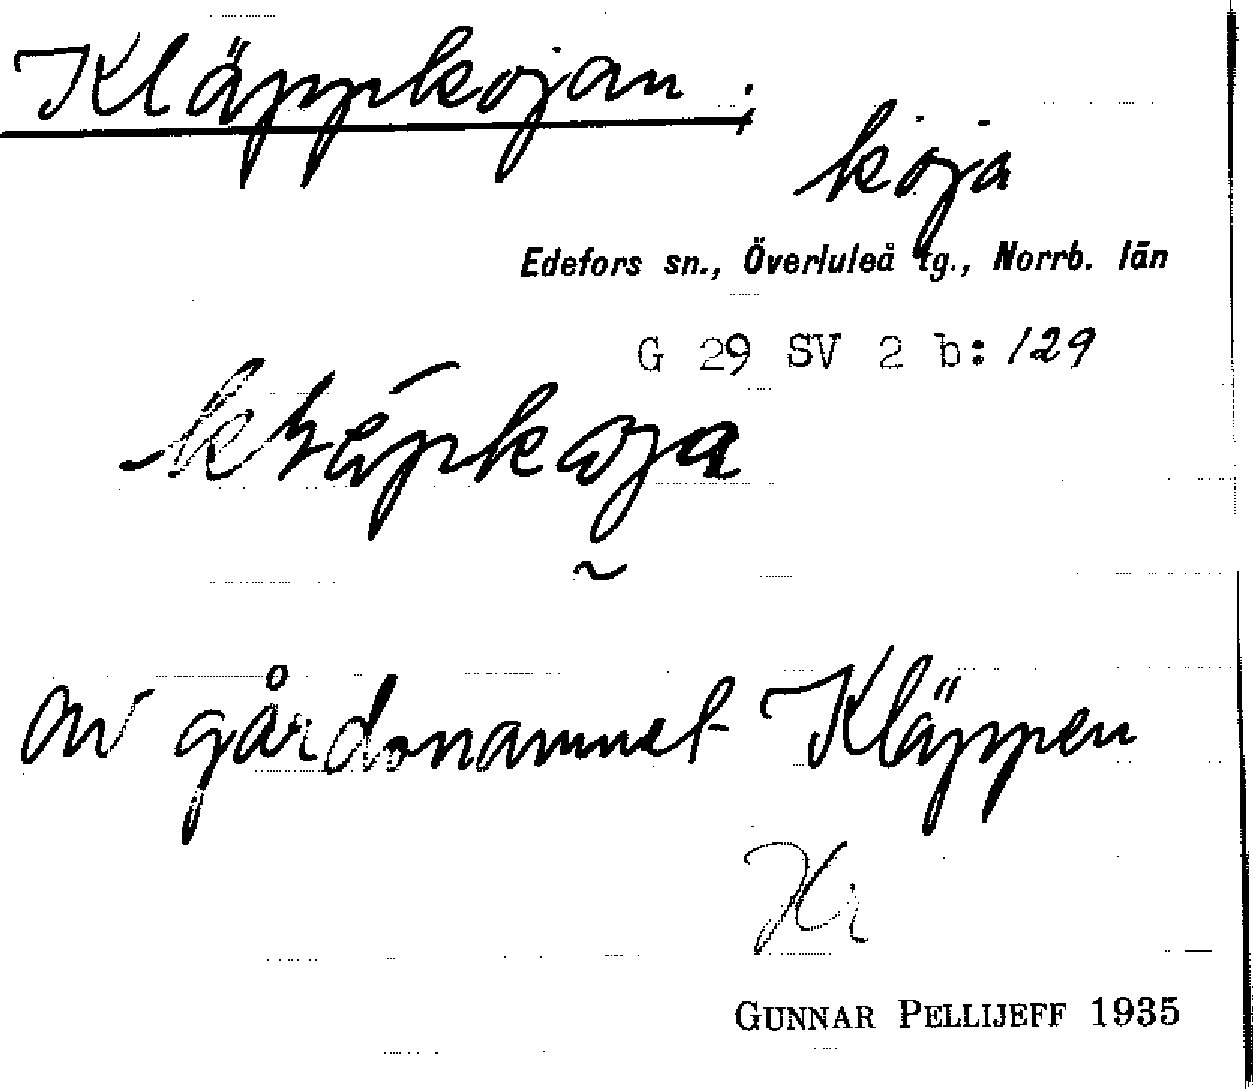 Kläppkojan ;
koja
Edefors sn., Överluleå tg., Norrb. län
G 29 SV 2 b: 129
av gårdsnamnet Kläppen
GUNNAR PELLIJEFF 1935